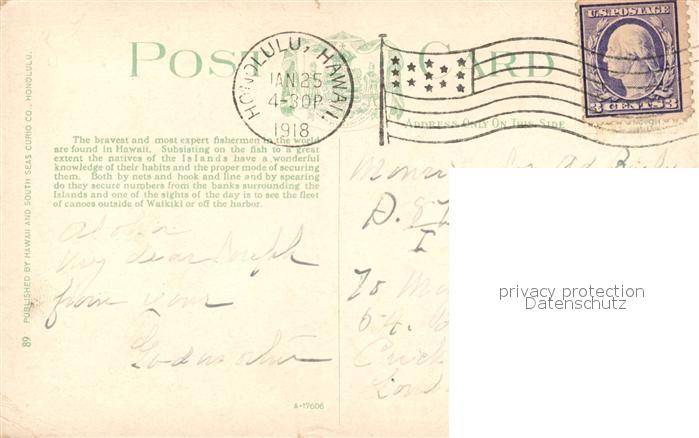 POST CARD
HONOLULU, HAWAII.
JAN 25
4-30P
1918
U.S. POSTAGE
3 CENTS 3
ADDRESS ONLY ON THIS SIDE
89 PUBLISHED BY HAWAII AND SOUTH SEAS CURIO CO., HONOLULU.
The bravest and most expert fishermen in the world
are found in Hawaii. Subsisting on the fish to a great
extent the natives of the Islands have a wonderful
knowledge of their habits and the proper mode of securing
them. Both by nets and hook and line and by spearing
do they secure numbers from the banks surrounding the
Islands and one of the sights of the day is to see the fleet
of canoes outside of Waikiki or off the harbor.
Aloha
My dear
from your
Godmother
A-17606
To
54.
privacy protection
Datenschutz